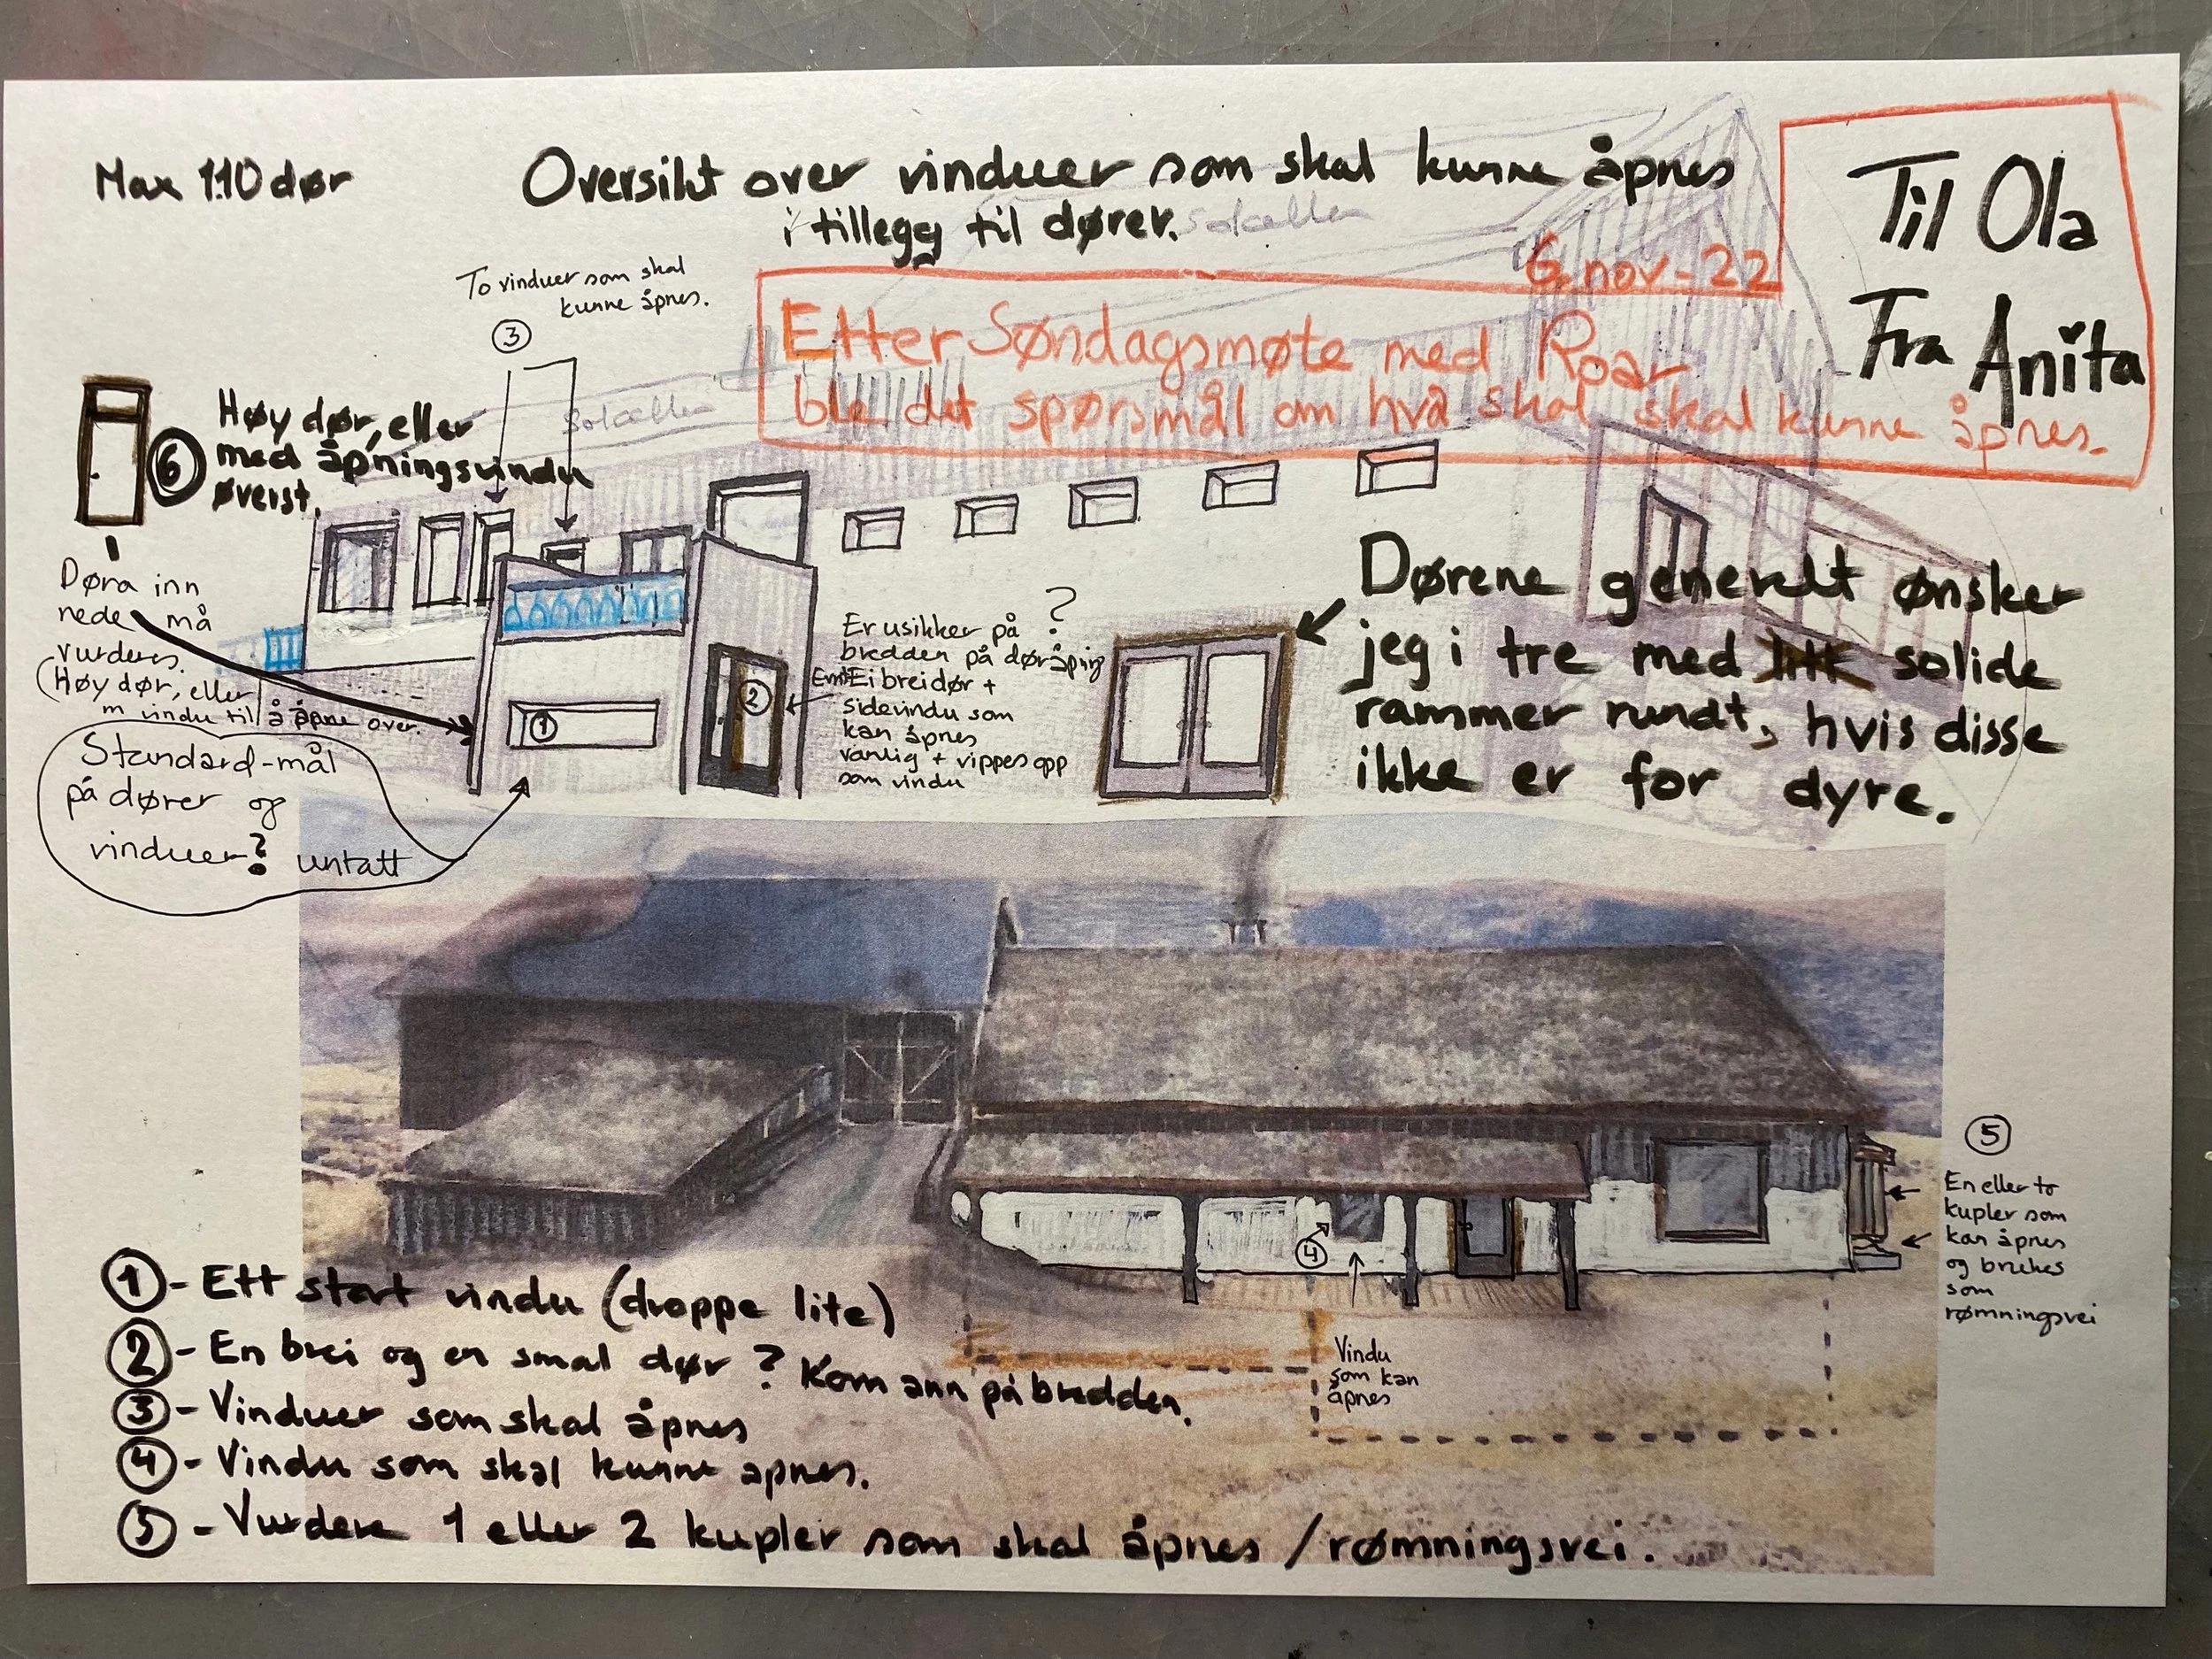 Max 1.10 dør
Oversikt over vinduer som skal kunne åpnes
i tillegg til dører.
Solceller
Til Ola
Fra Anita
6. nov-22
Etter Søndagsmøte med Roar
ble det spørsmål om hva skal skal kunne åpnes.
To vinduer som skal
kunne åpnes.
3
Solceller
6
Høy dør, eller
med åpningsvindu
øverst.
Døra inn
nede må
vurderes.
(Høy dør, eller
m vindu til å åpne over.
Standard-mål
på dører og
vinduer? untatt
1
2
Er usikker på ?
bredden på døråpning
Ei brei dør +
sidevindu som
kan åpnes
vanlig + vippes opp
som vindu
Dørene generelt ønsker
jeg i tre med litt solide
rammer rundt, hvis disse
ikke er for dyre.
4
Vindu
som kan
åpnes
5
En eller to
kupler som
kan åpnes
og brukes
som
rømningsvei
1 - Ett stort vindu (droppe lite)
2 - En brei og en smal dør? Kom ann på bredden.
3 - Vinduer som skal åpnes
4 - Vindu som skal kunne åpnes.
5 - Vurdere 1 eller 2 kupler som skal åpnes / rømningsvei.